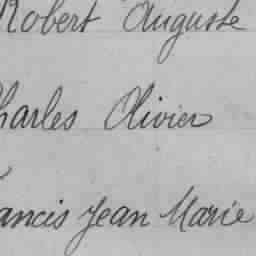 Robert Auguste
Charles Olivier
Francis Jean Marie